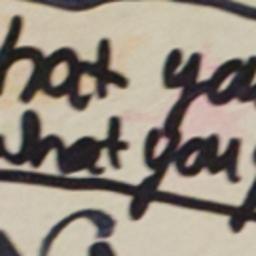 hat you
what you